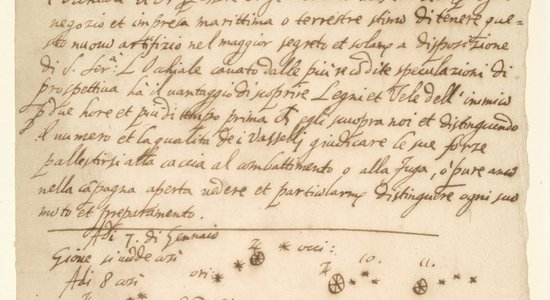 negozio et impresa marittima o terrestre stimo di tenere que-
sto nuovo artifizio nel maggior segreto et solamente a disposizione
di S. Ser:ª L'Ochiale cavato dalle più recondite speculazioni di
prospettiva ha il vantaggio di scoprire Legni et Vele dell'inimico
p due hore et più di tempo prima ch egli scuopra noi et distinguendo
il numero et la qualità de i Vasselli giudicare le sue forze
pallestirsi alla caccia al combattimento o alla fuga, ò pure anco
nella cāpagna aperta vedere et particolarmᵉ distinguere ogni suo
moto et preparamento.
Adi 7. di Gennaio
Giove si vedde così
occi:
Adi 8 così
ori:
10.
11.